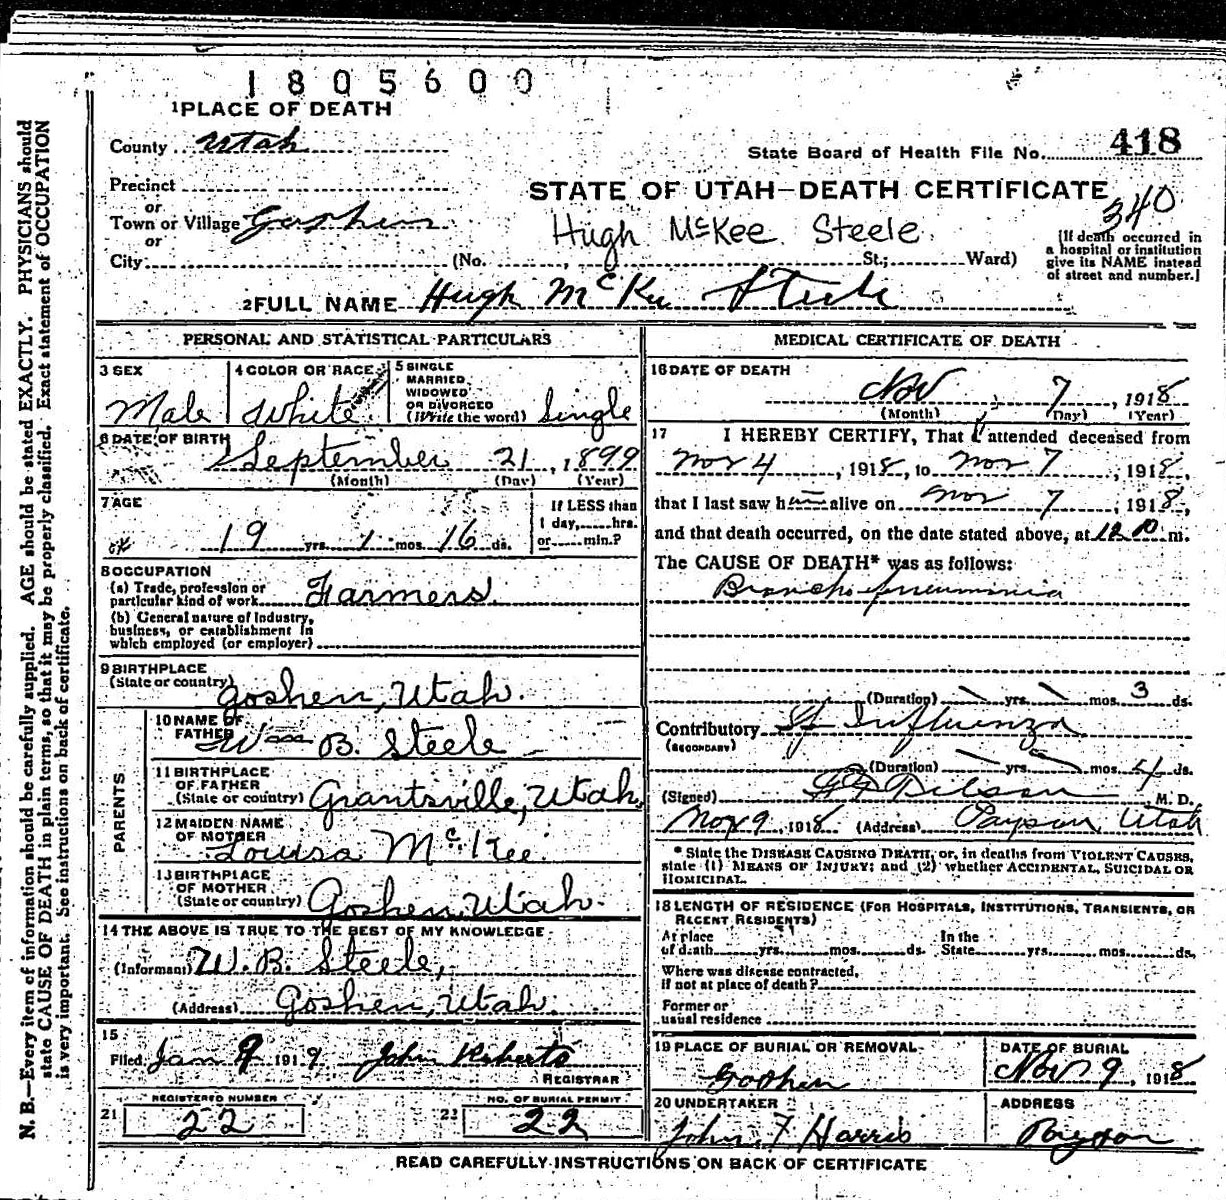 1805600
1 PLACE OF DEATH
County Utah
State Board of Health File No. 418
Precinct
or
STATE OF UTAH—DEATH CERTIFICATE
340
Town or Village Goshen
or
Hugh McKee Steele
City (No. , St.; Ward)
[If death occurred in
a hospital or institution
give its NAME instead
of street and number.]
2 FULL NAME Hugh McKee Steele
PERSONAL AND STATISTICAL PARTICULARS
3 SEX
Male
4 COLOR OR RACE
White
5 SINGLE
MARRIED
WIDOWED
OR DIVORCED
(Write the word) Single
6 DATE OF BIRTH
September 21, 1899
(Month) (Day) (Year)
7 AGE
19 yrs. 1 mos. 16 ds.
If LESS than
1 day, hrs.
or min.?
8 OCCUPATION
(a) Trade, profession or
particular kind of work Farmers
(b) General nature of industry,
business, or establishment in
which employed (or employer)
9 BIRTHPLACE
(State or country) Goshen, Utah.
PARENTS
10 NAME OF
FATHER Wm B. Steele
11 BIRTHPLACE
OF FATHER
(State or country) Grantsville, Utah.
12 MAIDEN NAME
OF MOTHER
Louisa McKee
13 BIRTHPLACE
OF MOTHER
(State or country) Goshen, Utah.
14 THE ABOVE IS TRUE TO THE BEST OF MY KNOWLEDGE
(Informant) W. B. Steele,
(Address) Goshen, Utah.
15
Filed Jan 9 1919 John Roberts
REGISTRAR
21 REGISTERED NUMBER
22
22 NO. OF BURIAL PERMIT
22
MEDICAL CERTIFICATE OF DEATH
16 DATE OF DEATH
Nov 7, 1918
(Month) (Day) (Year)
17 I HEREBY CERTIFY, That I attended deceased from
Nov 4, 1918, to Nov 7, 1918,
that I last saw him alive on Nov 7, 1918,
and that death occurred, on the date stated above, at 12 10 m.
The CAUSE OF DEATH* was as follows:
Broncho pneumonia
(Duration) yrs. mos. 3 ds.
Contributory Influenza
(SECONDARY)
(Duration) yrs. mos. 4 ds.
(Signed) M. D.
Nov 9, 1918 (Address) Payson, Utah
* State the DISEASE CAUSING DEATH, or, in deaths from VIOLENT CAUSES,
state (1) MEANS OF INJURY; and (2) whether ACCIDENTAL, SUICIDAL OR
HOMICIDAL.
18 LENGTH OF RESIDENCE (FOR HOSPITALS, INSTITUTIONS, TRANSIENTS, OR
RECENT RESIDENTS)
At place In the
of death yrs. mos. ds. State yrs. mos. ds.
Where was disease contracted,
if not at place of death?
Former or
usual residence
19 PLACE OF BURIAL OR REMOVAL
Goshen
DATE OF BURIAL
Nov 9, 1918
20 UNDERTAKER
John F Harris
ADDRESS
Payson
READ CAREFULLY INSTRUCTIONS ON BACK OF CERTIFICATE
N. B.—Every item of information should be carefully supplied. AGE should be stated EXACTLY. PHYSICIANS should
state CAUSE OF DEATH in plain terms, so that it may be properly classified. Exact statement of OCCUPATION
is very important. See instructions on back of certificate.